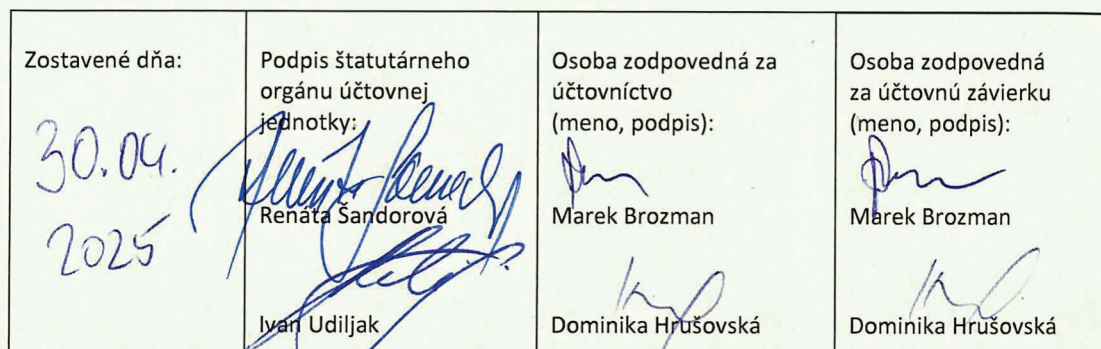 Zostavené dňa:
30.04.
2025
Podpis štatutárneho
orgánu účtovnej
jednotky:
Renáta Šandorová
Ivan Udiljak
Osoba zodpovedná za
účtovníctvo
(meno, podpis):
Marek Brozman
Dominika Hrušovská
Osoba zodpovedná
za účtovnú závierku
(meno, podpis):
Marek Brozman
Dominika Hrušovská